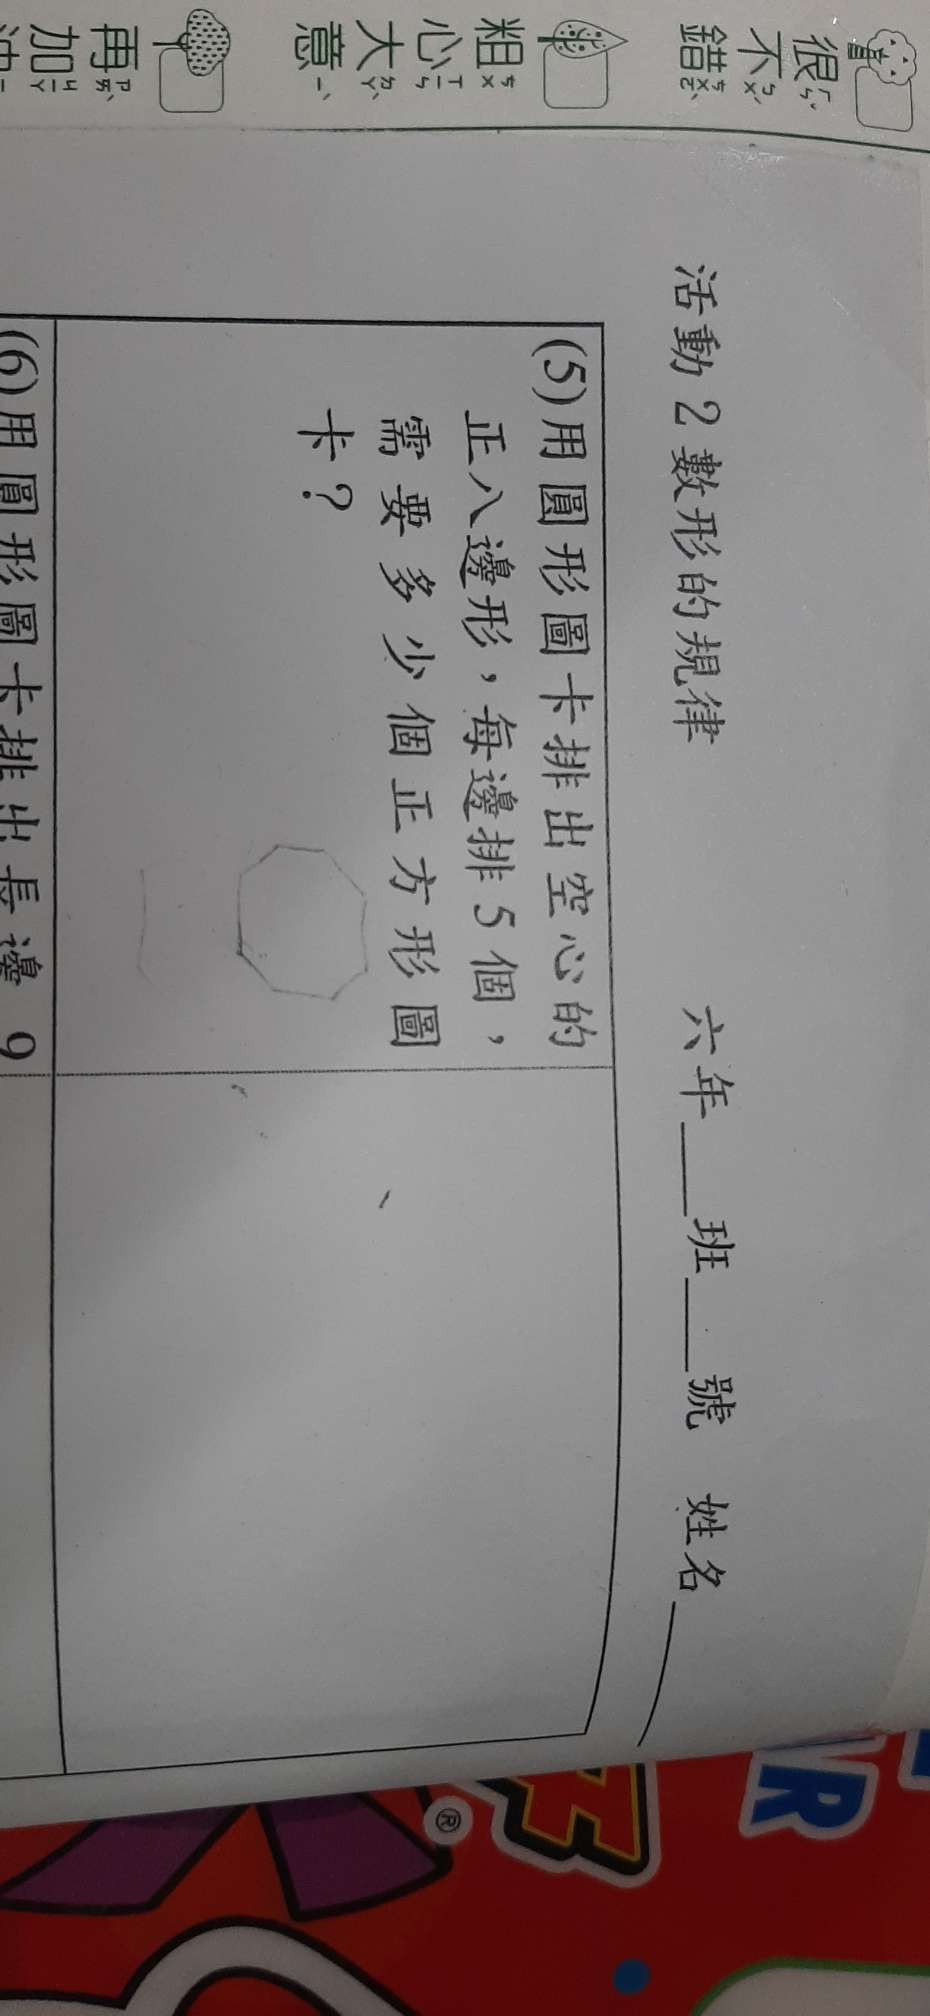 很不錯
粗心大意
再加
活動 2 數形的規律
六年___班___號 姓名
(5)用圓形圖卡排出空心的
正八邊形，每邊排 5 個，
需要多少個正方形圖
卡？
(6)用圓形圖卡排出長邊 9
®